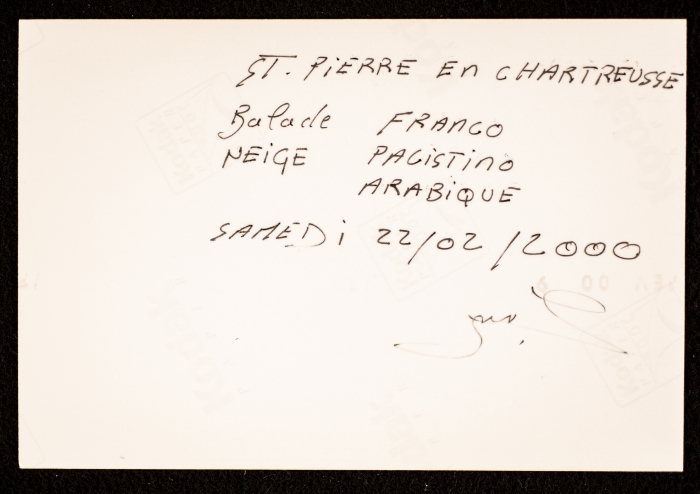 ST. PiERRE En CHARTREUSSE
Balade FRANCO
NEiGE PALiSTiNO
ARABiQUE
SAMEDi 22/02/2000